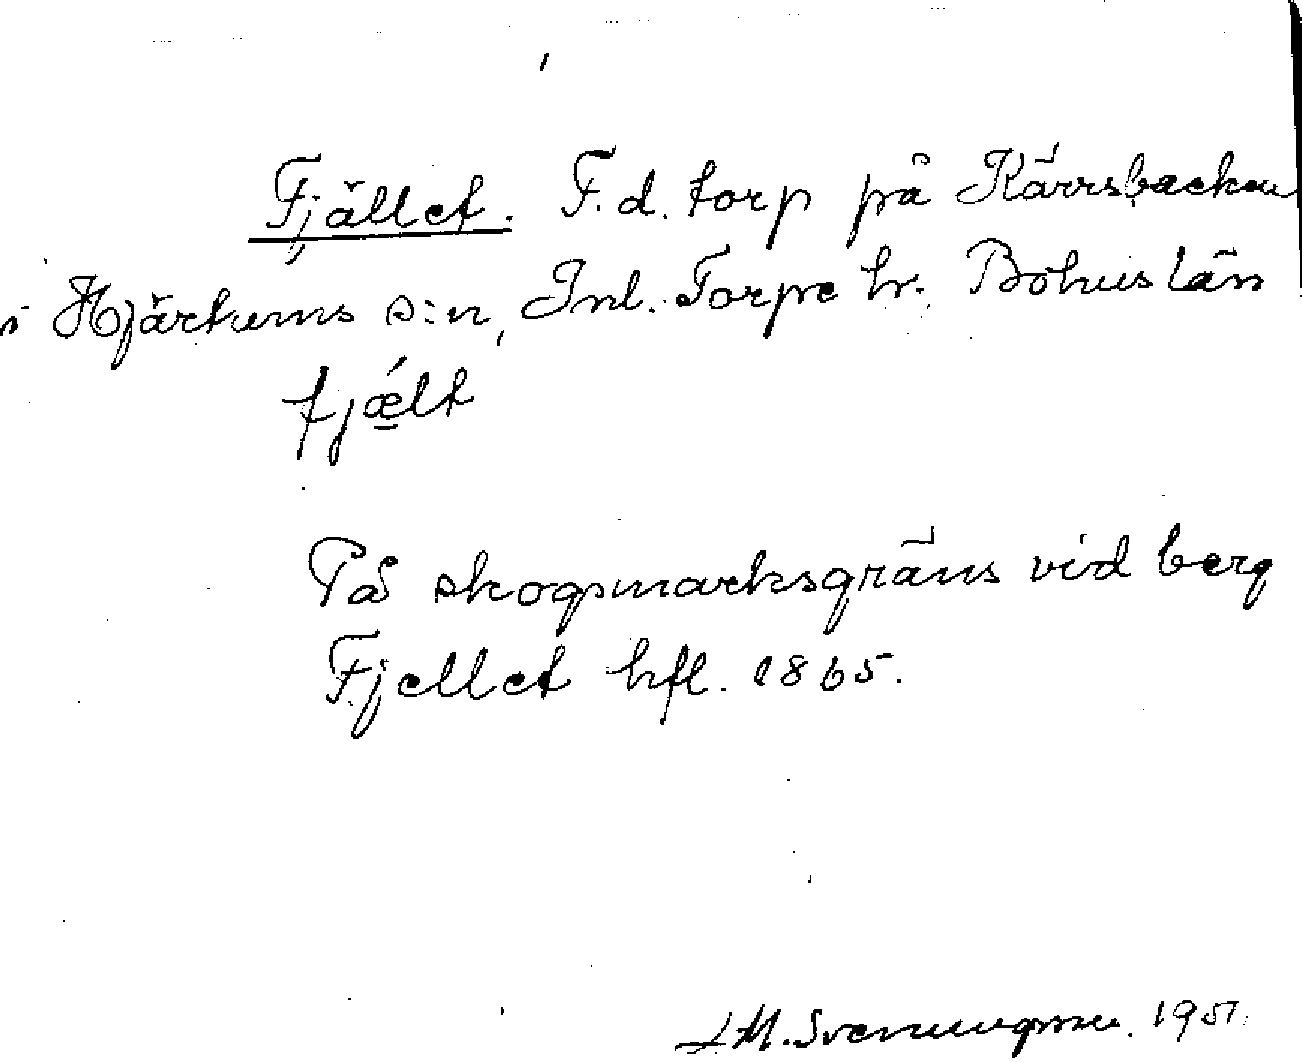 Fjället. F.d. torp på Kärrsbacken
i Hjärtums s:n, Inl. Torpe hr. Bohuslän
fjǽ̱lt
På skogsmarksgräns vid berg
Fjellet hfl. 1865.
J M. Svenungsson. 1951